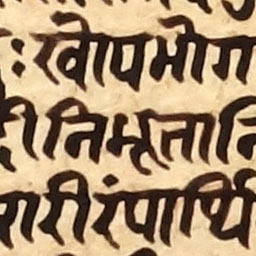 ःखोपभोग
दीनिभूतानि
शरीरंपार्थि